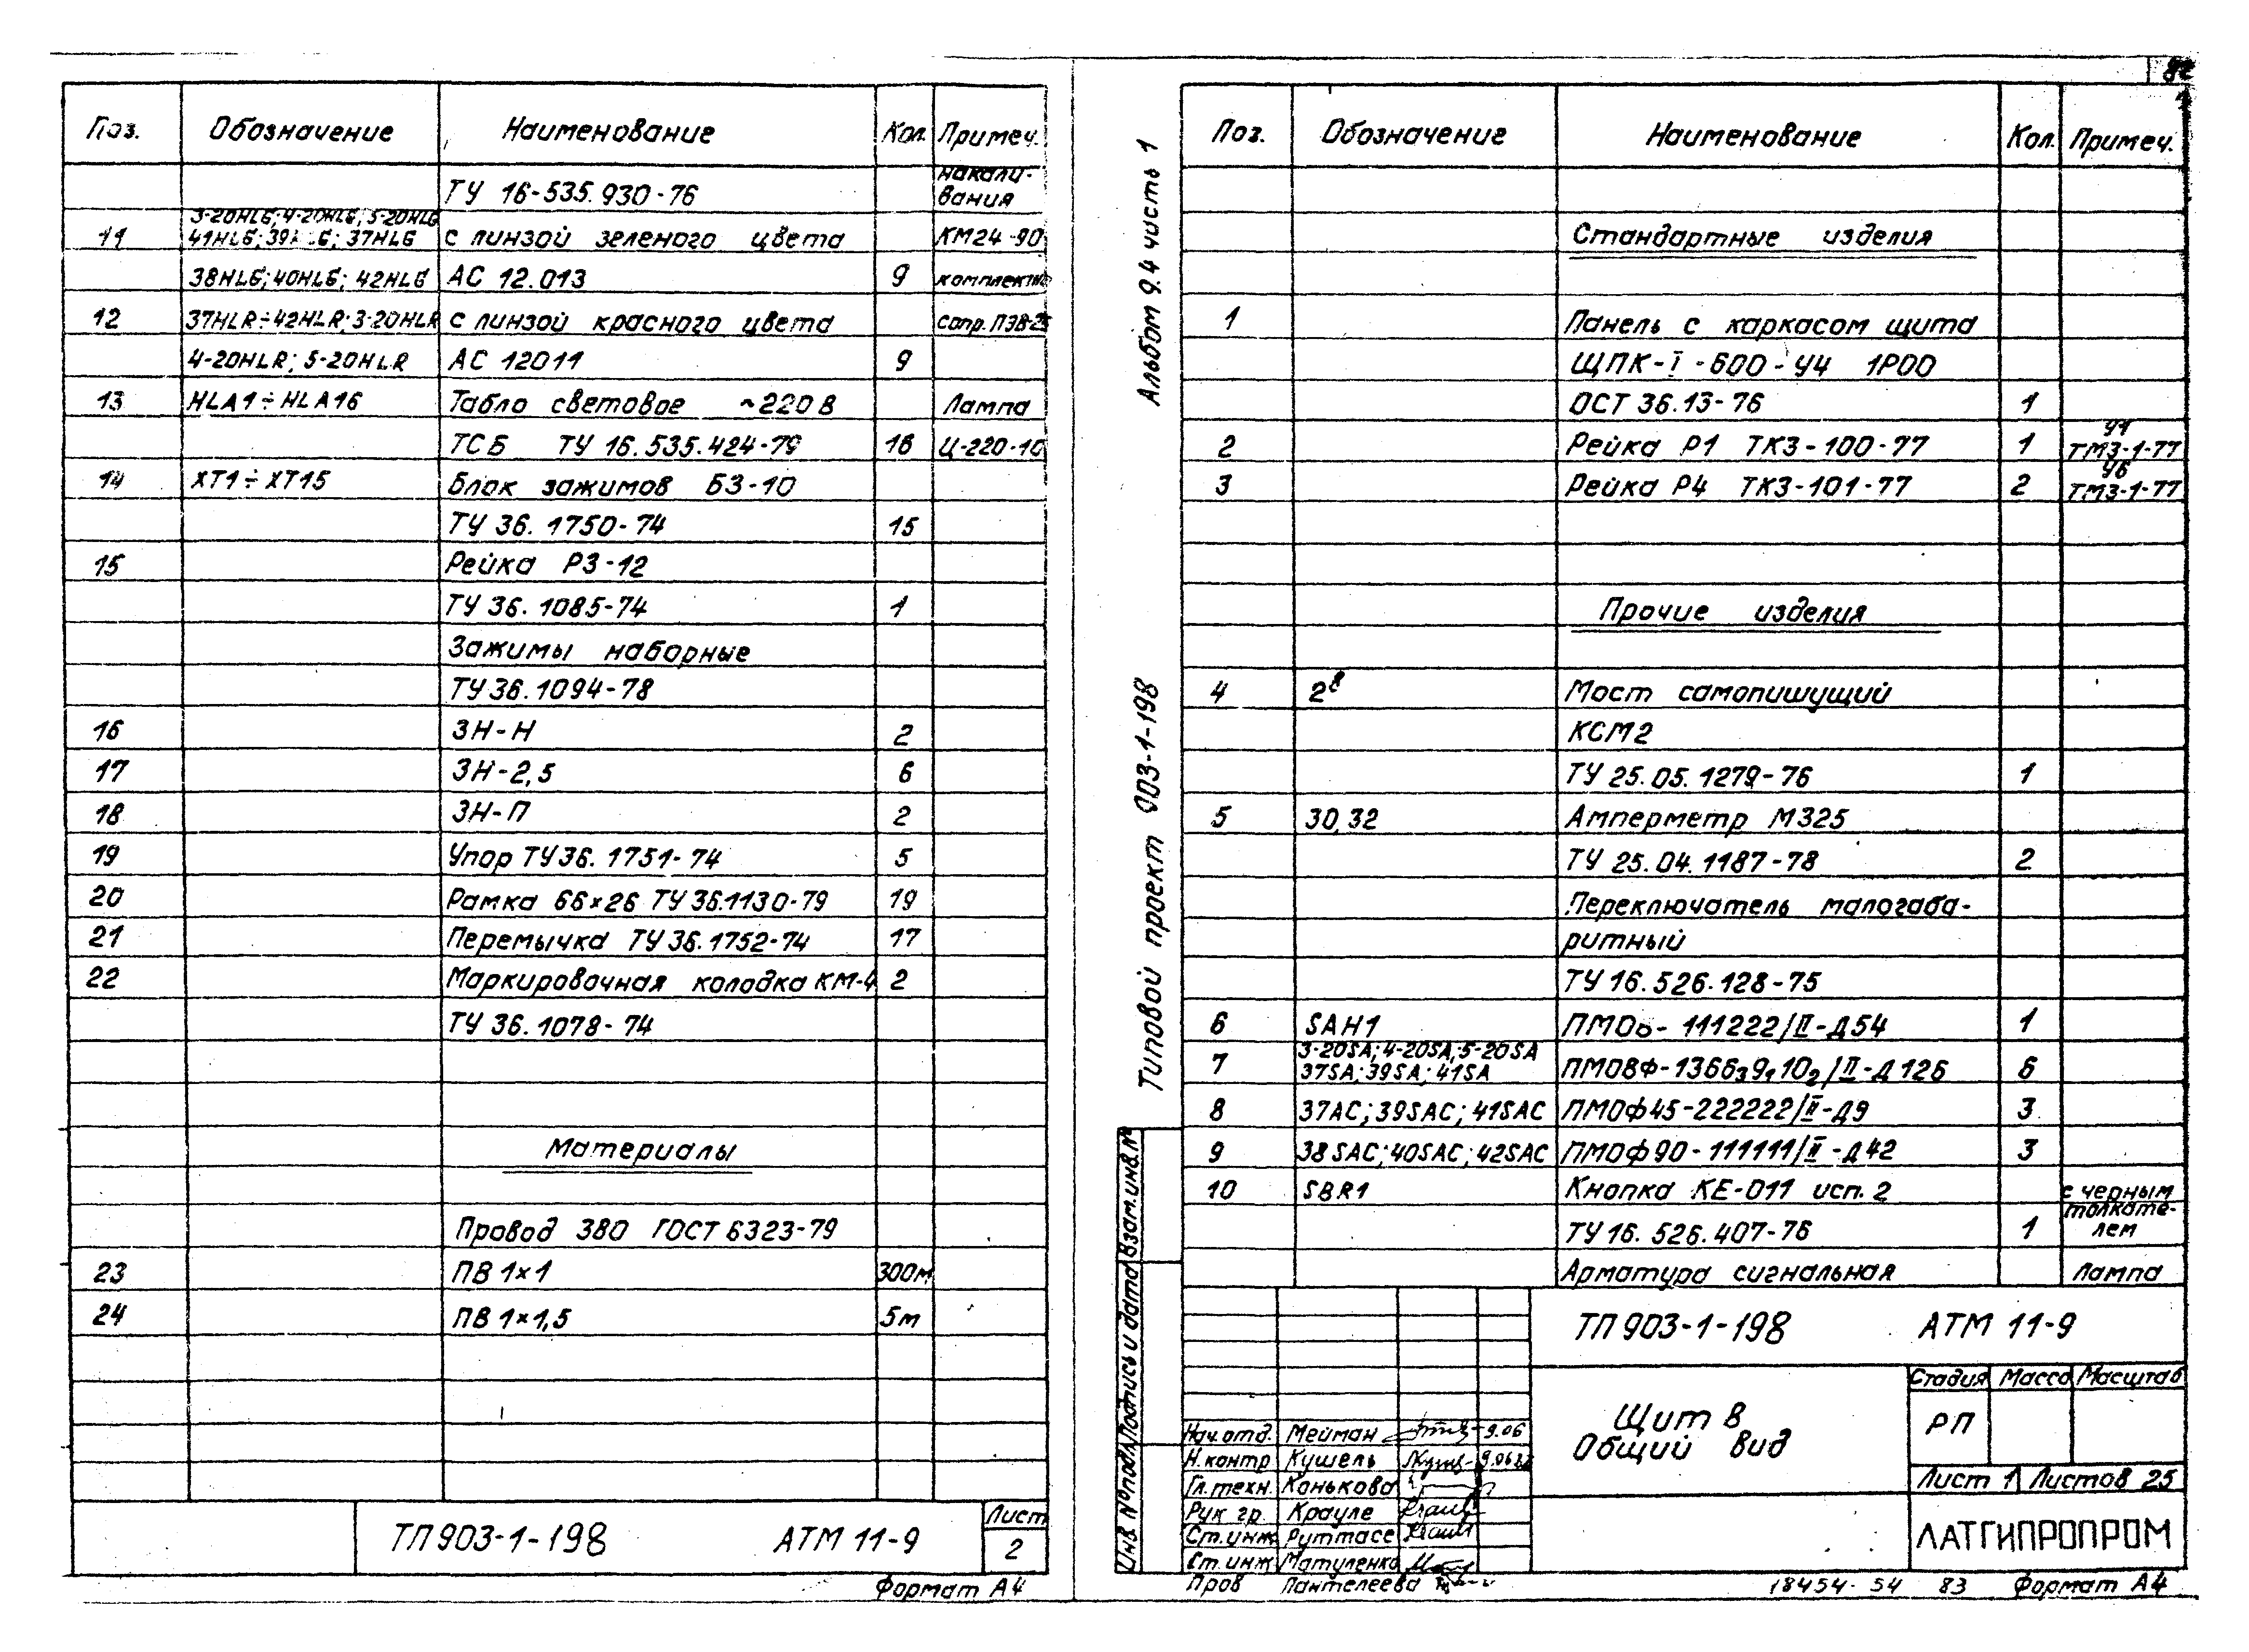 Поз. Обозначение Наименование Кол. Примеч.
ТУ 16-535.930-76 накали-
вания
3-20HLG; 4-20HLG; 5-20HLG
11 41HLG; 37HLG с линзой зеленого цвета КМ24-90
38HLG; 40HLG; 42HLG АС 12.013 9 комплектно
12 37HLR÷42HLR; 3-20HLR с линзой красного цвета сопр. ПЭВ-25
4-20HLR; 5-20HLR АС 12011 9
13 HLA1÷HLA16 Табло световое ~220В Лампа
ТСБ ТУ 16.535.424-79 16 Ц-220-10
14 XT1÷XT15 Блок зажимов БЗ-10
ТУ 36.1750-74 15
15 Рейка РЗ-12
ТУ 36.1085-74 1
Зажимы наборные
ТУ 36.1094-78
16 ЗН-Н 2
17 ЗН-2,5 6
18 ЗН-П 2
19 Упор ТУ 36.1751-74 5
20 Рамка 66×26 ТУ 36.1130-79 19
21 Перемычка ТУ 36.1752-74 17
22 Маркировочная колодка КМ-4 2
ТУ 36.1078-74
Материалы
Провод 380 ГОСТ 6323-79
23 ПВ 1×1 300м
24 ПВ 1×1,5 5м
ТП 903-1-198 АТМ 11-9 Лист
2
Формат А4
Альбом 9.4 часть 1
Типовой проект 903-1-198
Инв. № подл. Подпись и дата Взам. инв. №
82
Поз. Обозначение Наименование Кол. Примеч.
Стандартные изделия
1 Панель с каркасом щита
ЩПК-I-600-У4 1Р00
ОСТ 36.13-76 1
2 Рейка Р1 ТК3-100-77 1 У1
ТМ3-1-77
3 Рейка Р4 ТК3-101-77 2 У6
ТМ3-1-77
Прочие изделия
4 2в Мост самопишущий
КСМ2
ТУ 25.05.1279-76 1
5 30,32 Амперметр М325
ТУ 25.04.1187-78 2
Переключатель малогаба-
ритный
ТУ 16.526.128-75
6 SAH1 ПМОв-111222/II-Д54 1
3-20SA; 4-20SA; 5-20SA
7 37SA; 39SA; 41SA ПМОВФ-1366₃9₁10₂/II-Д126 6
8 37AC; 39SAC; 41SAC ПМОф45-222222/II-Д9 3
9 38SAC; 40SAC; 42SAC ПМОф90-111111/II-Д42 3
10 SBR1 Кнопка КЕ-011 исп.2 с черным
толкате-
ТУ 16.526.407-76 1 лем
Арматура сигнальная Лампа
ТП 903-1-198 АТМ 11-9
Щит 8
Общий вид
Стадия Масса Масштаб
РП
Лист 1 Листов 25
ЛАТГИПРОПРОМ
Нач.отд. Мейман 9.06
Н.контр Кушель
Гл.техн. Конькова
Рук гр. Крауле
Ст.инж Руттасе
Ст.инж Матуленко
Пров Пантелеева
18454-54 83 Формат А4